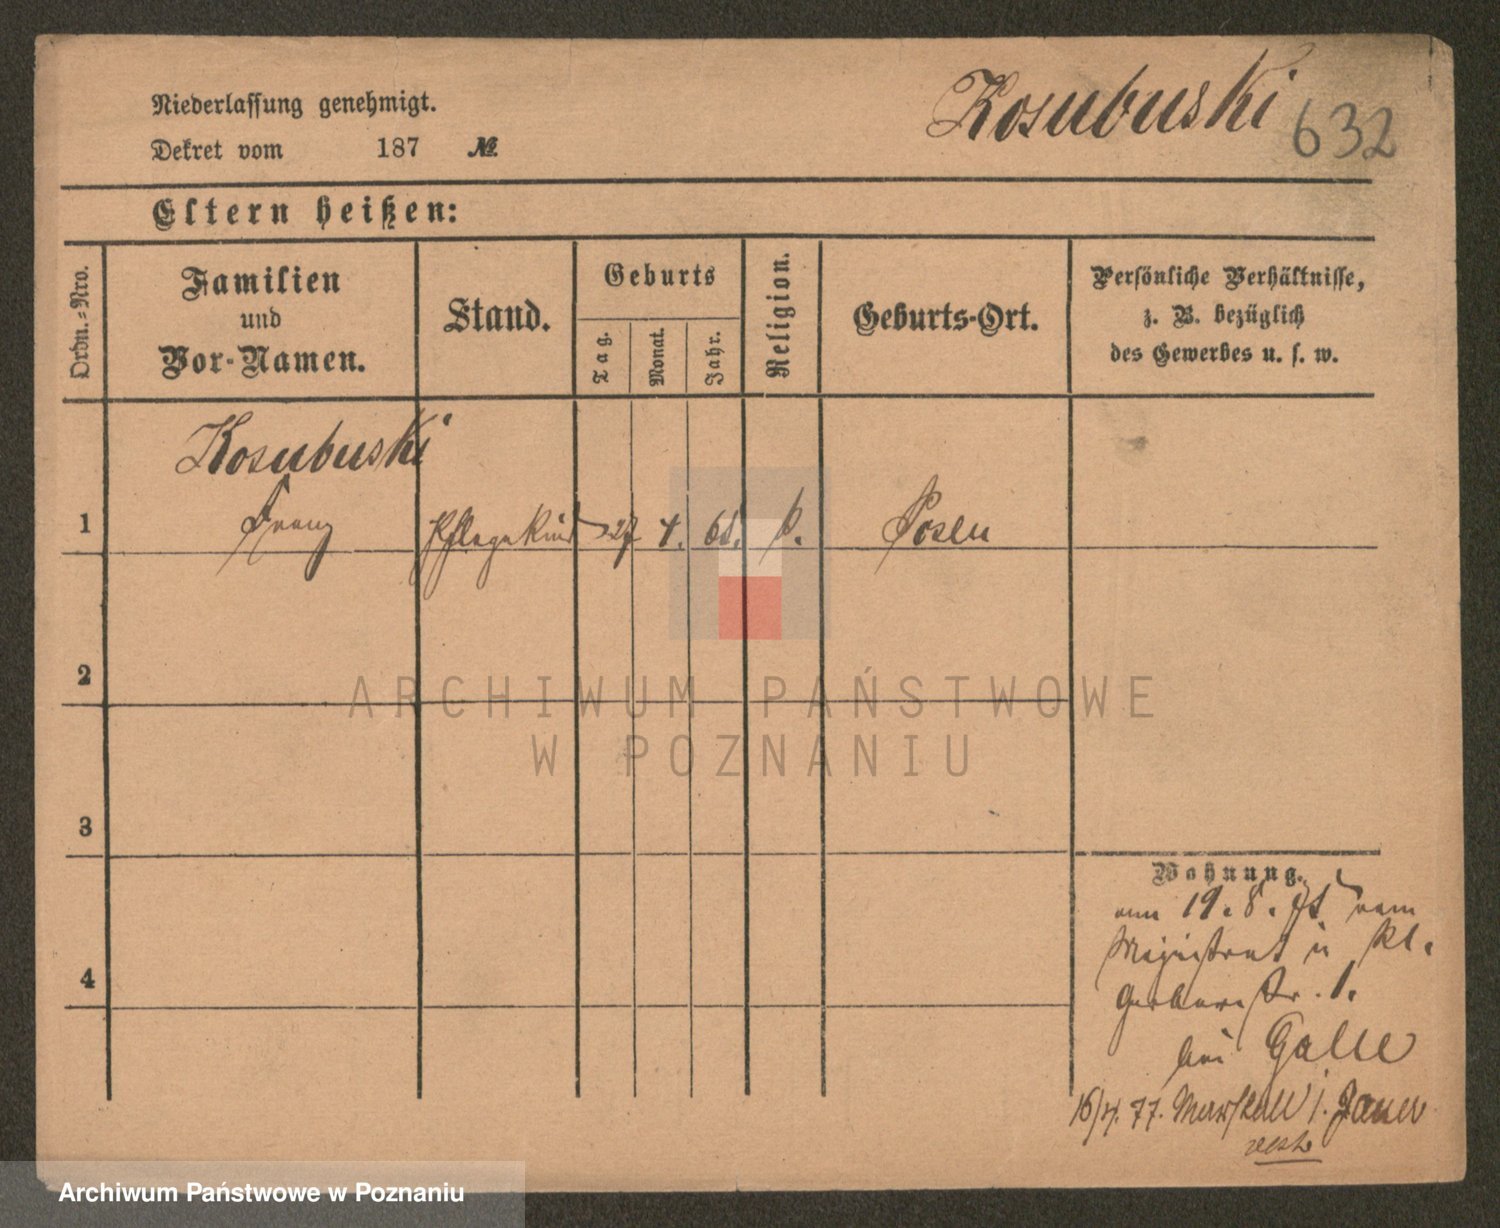 Niederlassung genehmigt.
Dekret vom 187 №
Kosubuski 632
Eltern heißen:
Ordn.-Nro.
Familien
und
Vor-Namen.
Stand.
Geburts
Tag.
Monat.
Jahr.
Religion.
Geburts-Ort.
Persönliche Verhältnisse,
z. B. bezüglich
des Gewerbes u. s. w.
Kosubuski
1 Franz Pflegekind 27 4. 68. k. Posen
2
3
4
ARCHIWUM PAŃSTWOWE
W POZNANIU
Wohnung.
19. 8. vom
Magistrat Kl.
Gerberstr. 1.
bei Galle
16/4. 77. Jauer
Archiwum Państwowe w Poznaniu